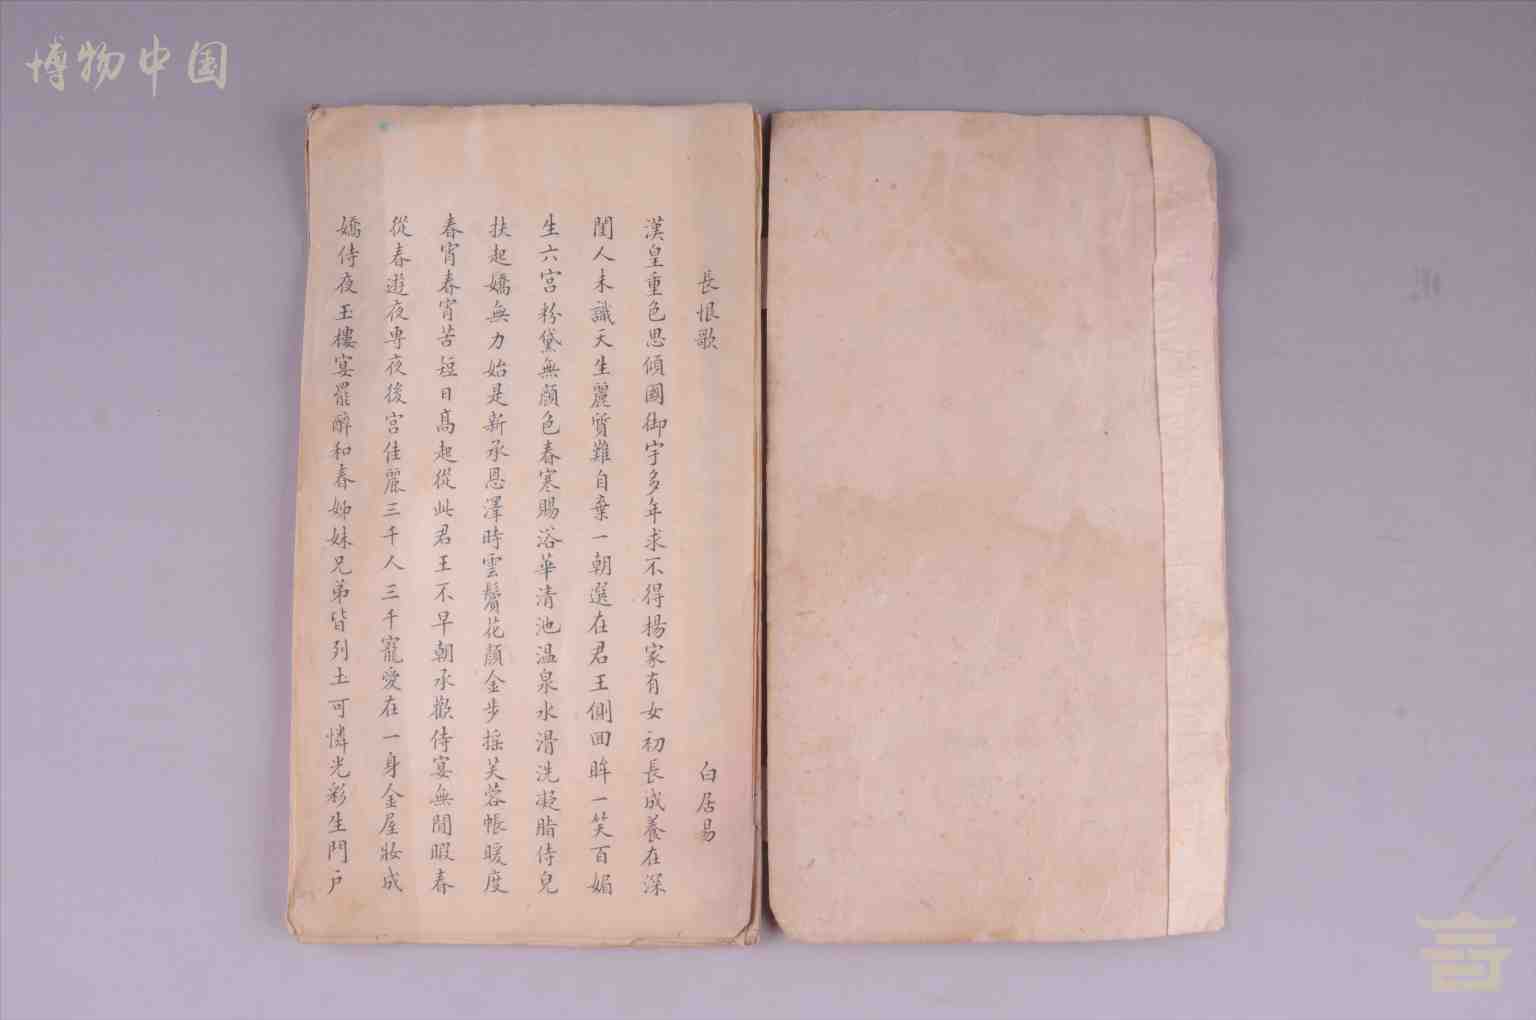 博物中国
長恨歌 白居易
漢皇重色思傾國御宇多年求不得楊家有女初長成養在深
閨人未識天生麗質難自棄一朝選在君王側回眸一笑百媚
生六宮粉黛無顏色春寒賜浴華清池温泉水滑洗凝脂侍兒
扶起嬌無力始是新承恩澤時雲鬢花顏金步摇芙蓉帳暖度
春宵春宵苦短日高起從此君王不早朝承歡侍宴無閒暇春
從春遊夜専夜後宮佳麗三千人三千寵愛在一身金屋妝成
嬌侍夜玉樓宴罷醉和春姊妹兄弟皆列土可憐光彩生門户